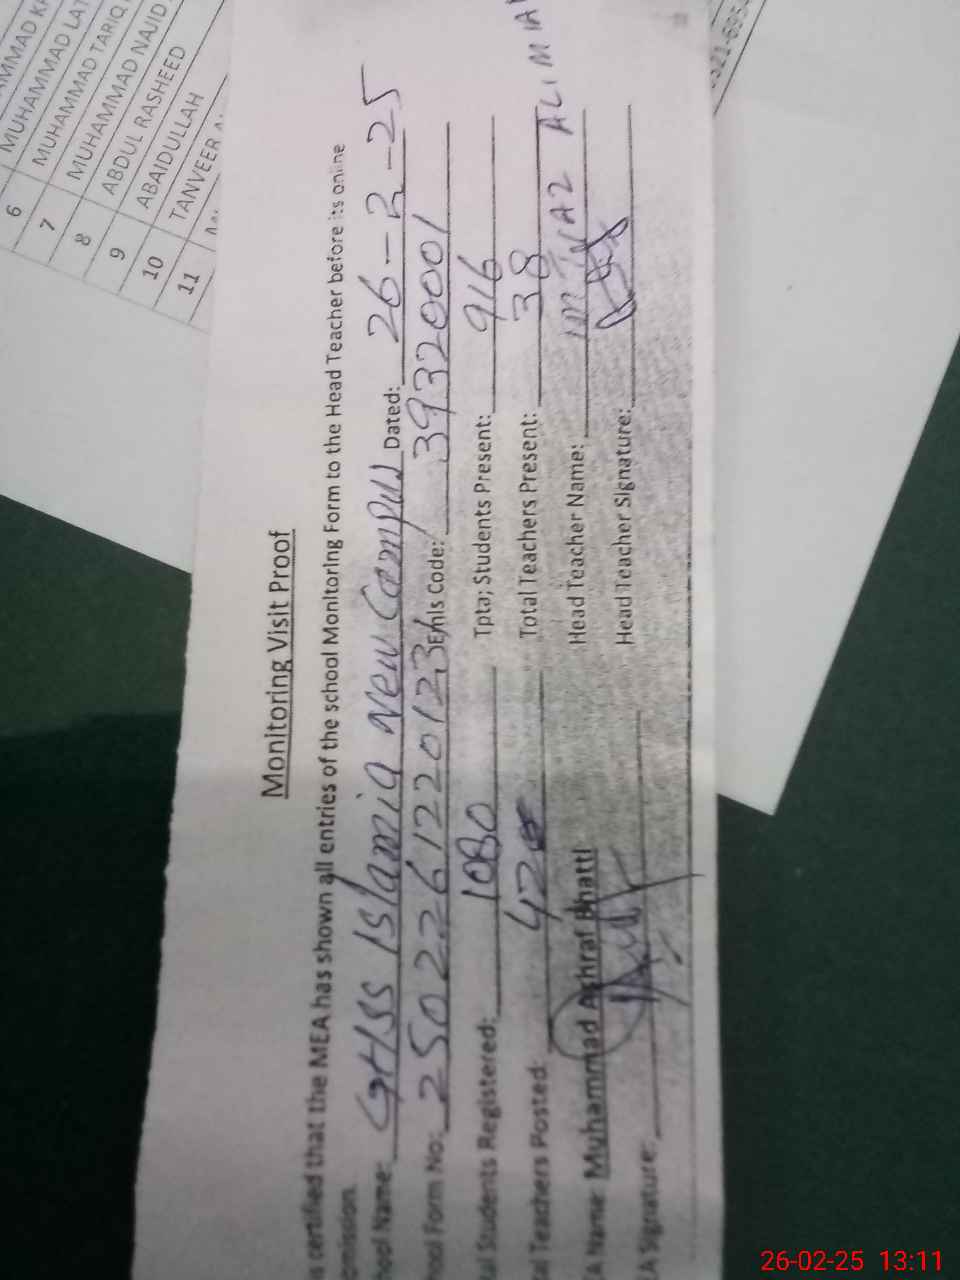 6 MUHAMMAD LAT
7 MUHAMMAD TARIQ
8 MUHAMMAD NAJID
9 ABDUL RASHEED
10 ABAIDULLAH
11 TANVEER A
Monitoring Visit Proof
s certified that the MEA has shown all entries of the school Monitoring Form to the Head Teacher before its online
omission.
hool Name: GHSS Islamia New Campus Dated: 26-2-25
hool Form No: 25022612201231 Emis Code: 39320001
tal Students Registered: 1080 Tpta; Students Present: 916
tal Teachers Posted: 42 Total Teachers Present: 38
EA Name: Muhammad Ashraf Bhatti Head Teacher Name: IMTIAZ ALI MIA
EA Signature: Head Teacher Signature:
26-02-25 13:11